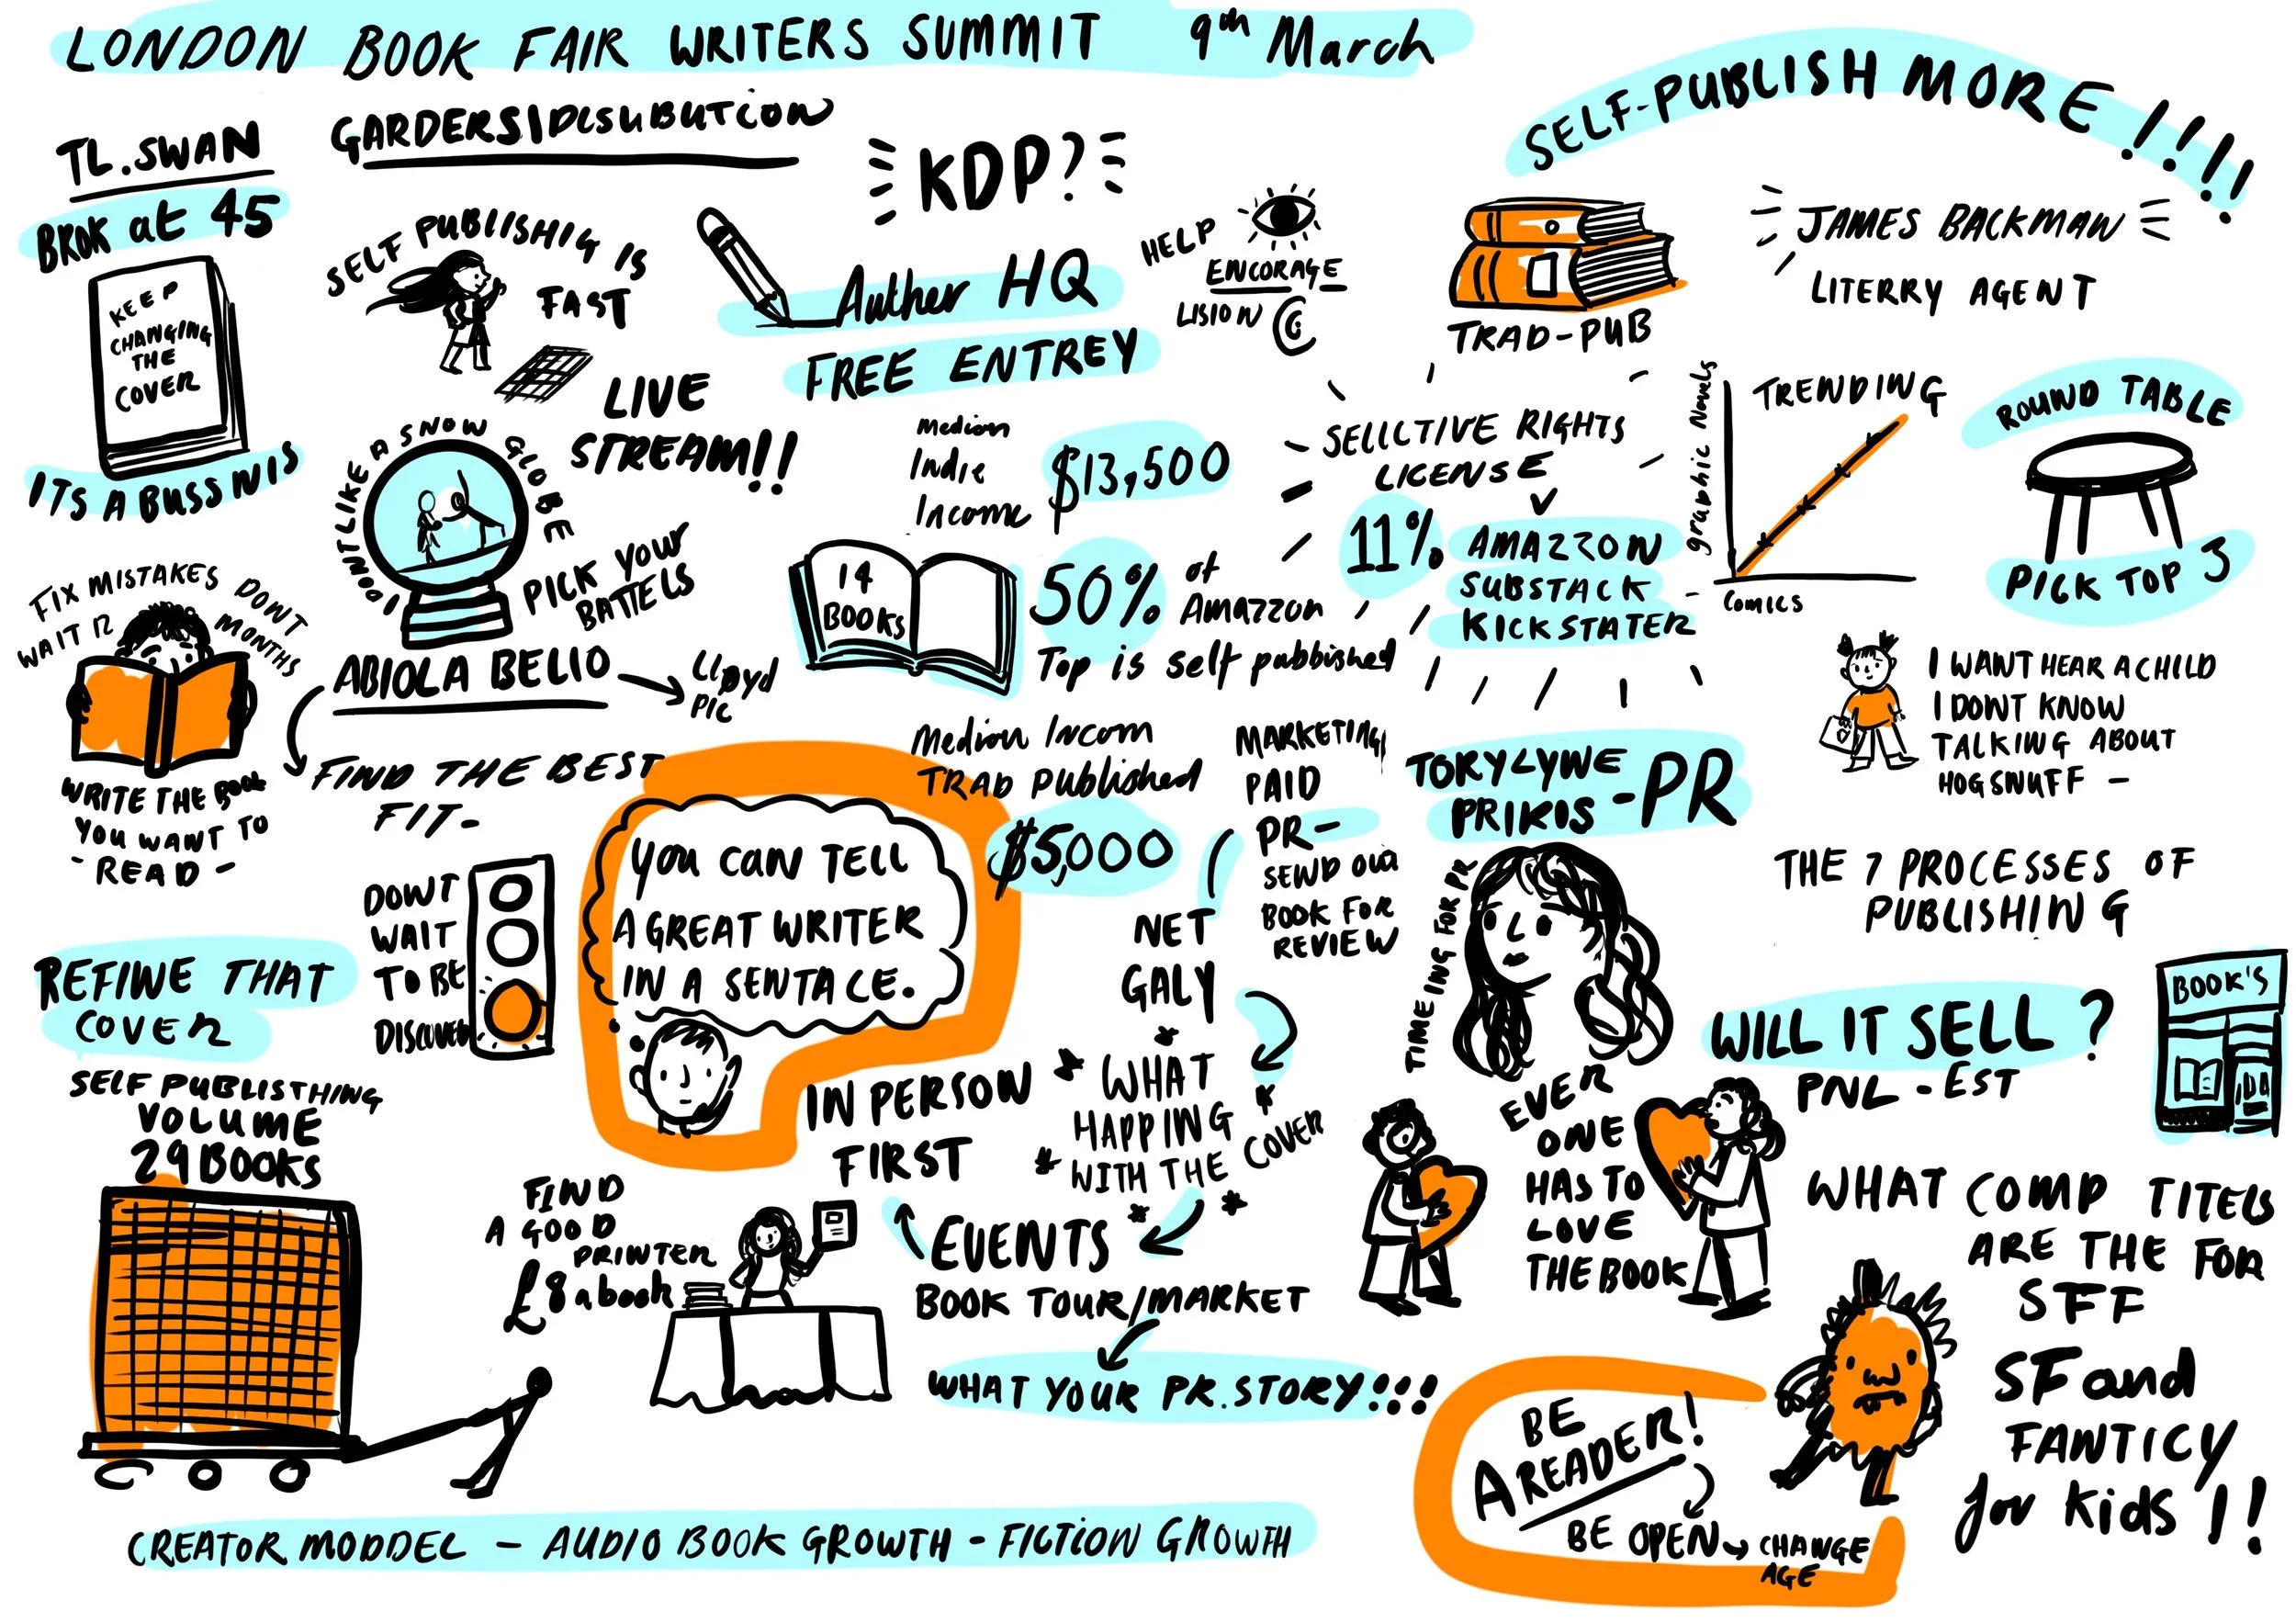 LONDON BOOK FAIR WRITERS SUMMIT 9th March
TL.SWAN
BROK at 45
KEEP
CHANGING
THE
COVER
ITS A BUSSNIS
GARDERS|DISUBUTION
SELF PUBLISHIG IS
FAST
KDP?
Auther HQ
FREE ENTREY
HELP
ENCORAGE
LISION
SELF-PUBLISH MORE!!!!
TRAD-PUB
JAMES BACKMAN
LITERRY AGENT
LIVE
STREAM!!
DONT LIKE A SNOW GLOBE
PICK YOUR
BATTELS
Median
Indie
Income
$13,500
14
BOOKS
50% of
Amazzon
Top is self pubbished
SELLCTIVE RIGHTS
LICENSE
11%
AMAZZON
SUBSTACK
KICKSTATER
graphic Novels
TRENDING
Comics
ROUND TABLE
PICK TOP 3
FIX MISTAKES DONT
WAIT 12 MONTHS
WRITE THE BOOK
YOU WANT TO
- READ -
ABIOLA BELLO
Lloyd
PIC
FIND THE BEST
FIT-
DONT
WAIT
TO BE
DISCOVED
YOU CAN TELL
A GREAT WRITER
IN A SENTACE.
Median Incom
TRAD Published
$5,000
MARKETING
PAID
PR-
SEND OUT
BOOK FOR
REVIEW
NET
GALY
WHAT
HAPPING
WITH THE COVER
TORYLYNE
PRIKOS -PR
TIMEING FOR PR
I WANT HEAR A CHILD
I DONT KNOW
TALKING ABOUT
HOGSNUFF -
THE 7 PROCESSES OF
PUBLISHING
WILL IT SELL?
PNL - EST
BOOK'S
REFINE THAT
COVER
SELF PUBLISTHING
VOLUME
29 BOOKS
FIND
A GOOD
PRINTER
£8 a book
IN PERSON
FIRST
EVENTS
BOOK TOUR/MARKET
WHAT YOUR PR.STORY!!!
EVER
ONE
HAS TO
LOVE
THE BOOK
WHAT COMP TITELS
ARE THE FOR
SFF
SF and
FANTICY
for Kids!!
BE
A READER!
BE OPEN
CHANGE
AGE
CREATOR MODDEL - AUDIO BOOK GROWTH - FICTION GROWTH